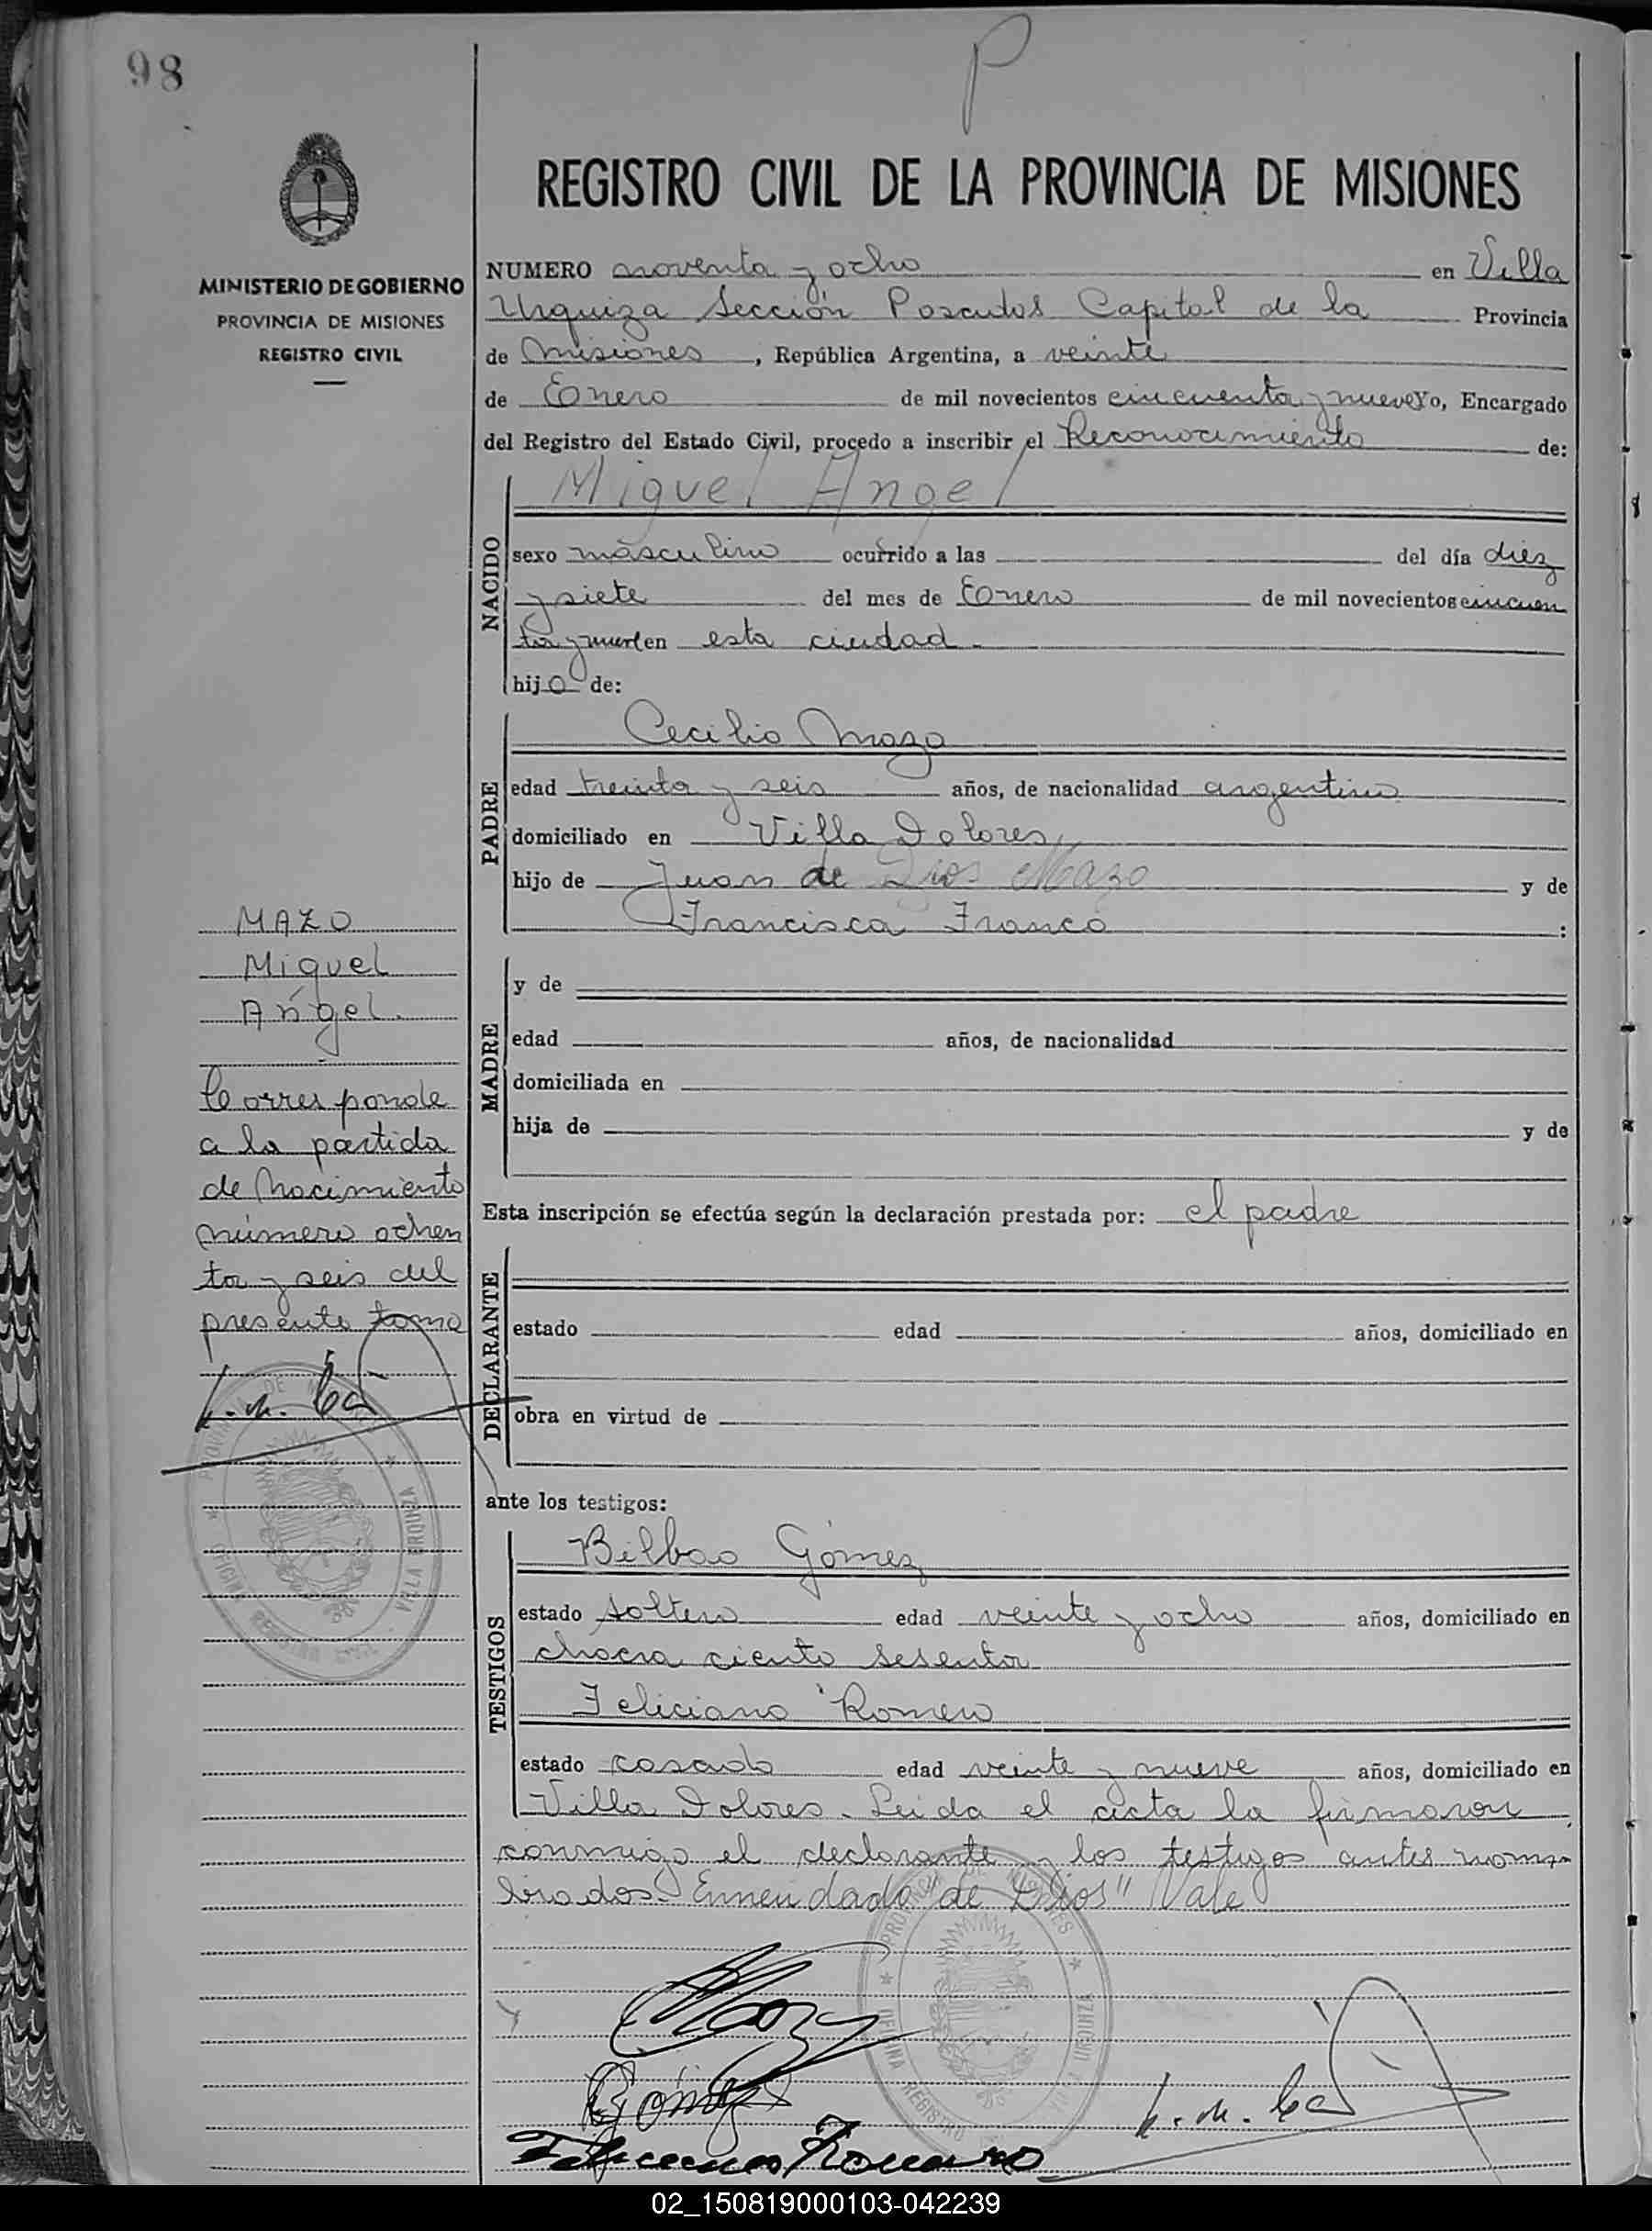 98
P
REGISTRO CIVIL DE LA PROVINCIA DE MISIONES
MINISTERIO DE GOBIERNO
PROVINCIA DE MISIONES
REGISTRO CIVIL
NUMERO noventa y ocho en Villa
Urquiza Sección Posadas Capital de la Provincia
de Misiones, República Argentina, a veinte
de Enero de mil novecientos cincuenta y nueve Yo, Encargado
del Registro del Estado Civil, procedo a inscribir el Reconocimiento de:
NACIDO
Miguel Angel
sexo masculino ocurrido a las del día diez
y siete del mes de Enero de mil novecientos cincuen
ta y nueve en esta ciudad.
hijo de:
PADRE
Cecilio Mazo
edad treinta y seis años, de nacionalidad argentino
domiciliado en Villa Dolores,
hijo de Juan de Dios Mazo y de
Francisca Franco :
MADRE
y de
edad años, de nacionalidad
domiciliada en
hija de y de
Esta inscripción se efectúa según la declaración prestada por: el padre
DECLARANTE
estado edad años, domiciliado en
obra en virtud de
ante los testigos:
TESTIGOS
Bilbao Gómez
estado soltero edad veinte y ocho años, domiciliado en
chacra ciento sesenta
Feliciano Romero
estado casado edad veinte y nueve años, domiciliado en
Villa Dolores. Leida el acta la firmaron
conmigo el declarante y los testigos antes nom-
brados. Enmendado de Dios" Vale
MAZO
Miguel
Angel.
Corresponde
a la partida
de Nacimiento
número ochen
ta y seis del
presente tomo
PROVINCIA DE MISIONES
OFICINA REGISTRO CIVIL
VILLA URQUIZA
PROVINCIA DE MISIONES
OFICINA REGISTRO
VILLA URQUIZA
Mazo
Gómez
Feliciano Romero
02_150819000103-042239